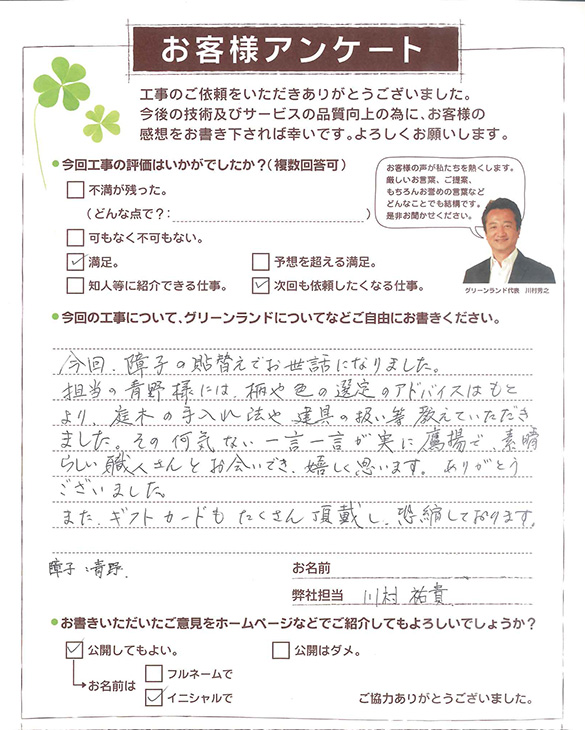 お客様アンケート
工事のご依頼をいただきありがとうございました。
今後の技術及びサービスの品質向上の為に、お客様の
感想をお書き下されば幸いです。よろしくお願いします。
●今回工事の評価はいかがでしたか?(複数回答可)
お客様の声が私たちを熱くします。
厳しいお言葉、ご提案、
もちろんお誉めの言葉など
どんなことでも結構です。
是非お聞かせください。
グリーンランド代表 川村芳之
不満が残った。
(どんな点で?: )
可もなく不可もない。
満足。 予想を超える満足。
知人等に紹介できる仕事。 次回も依頼したくなる仕事。
●今回の工事について、グリーンランドについてなどご自由にお書きください。
今回、障子の貼替えでお世話になりました。
担当の青野様には、柄や色の選定のアドバイスはもと
より、庭木の手入れ法や建具の扱い等教えていただき
ました。その何気ない一言一言が実に鷹揚で、素晴
らしい職人さんとお会いでき、嬉しく思います。ありがとう
ございました。
また、ギフトカードもたくさん頂戴し、恐縮しております。
障子:青野.
お名前
弊社担当 川村 祐貴
●お書きいただいたご意見をホームページなどでご紹介してもよろしいでしょうか?
公開してもよい。 公開はダメ。
お名前は フルネームで
イニシャルで
ご協力ありがとうございました。